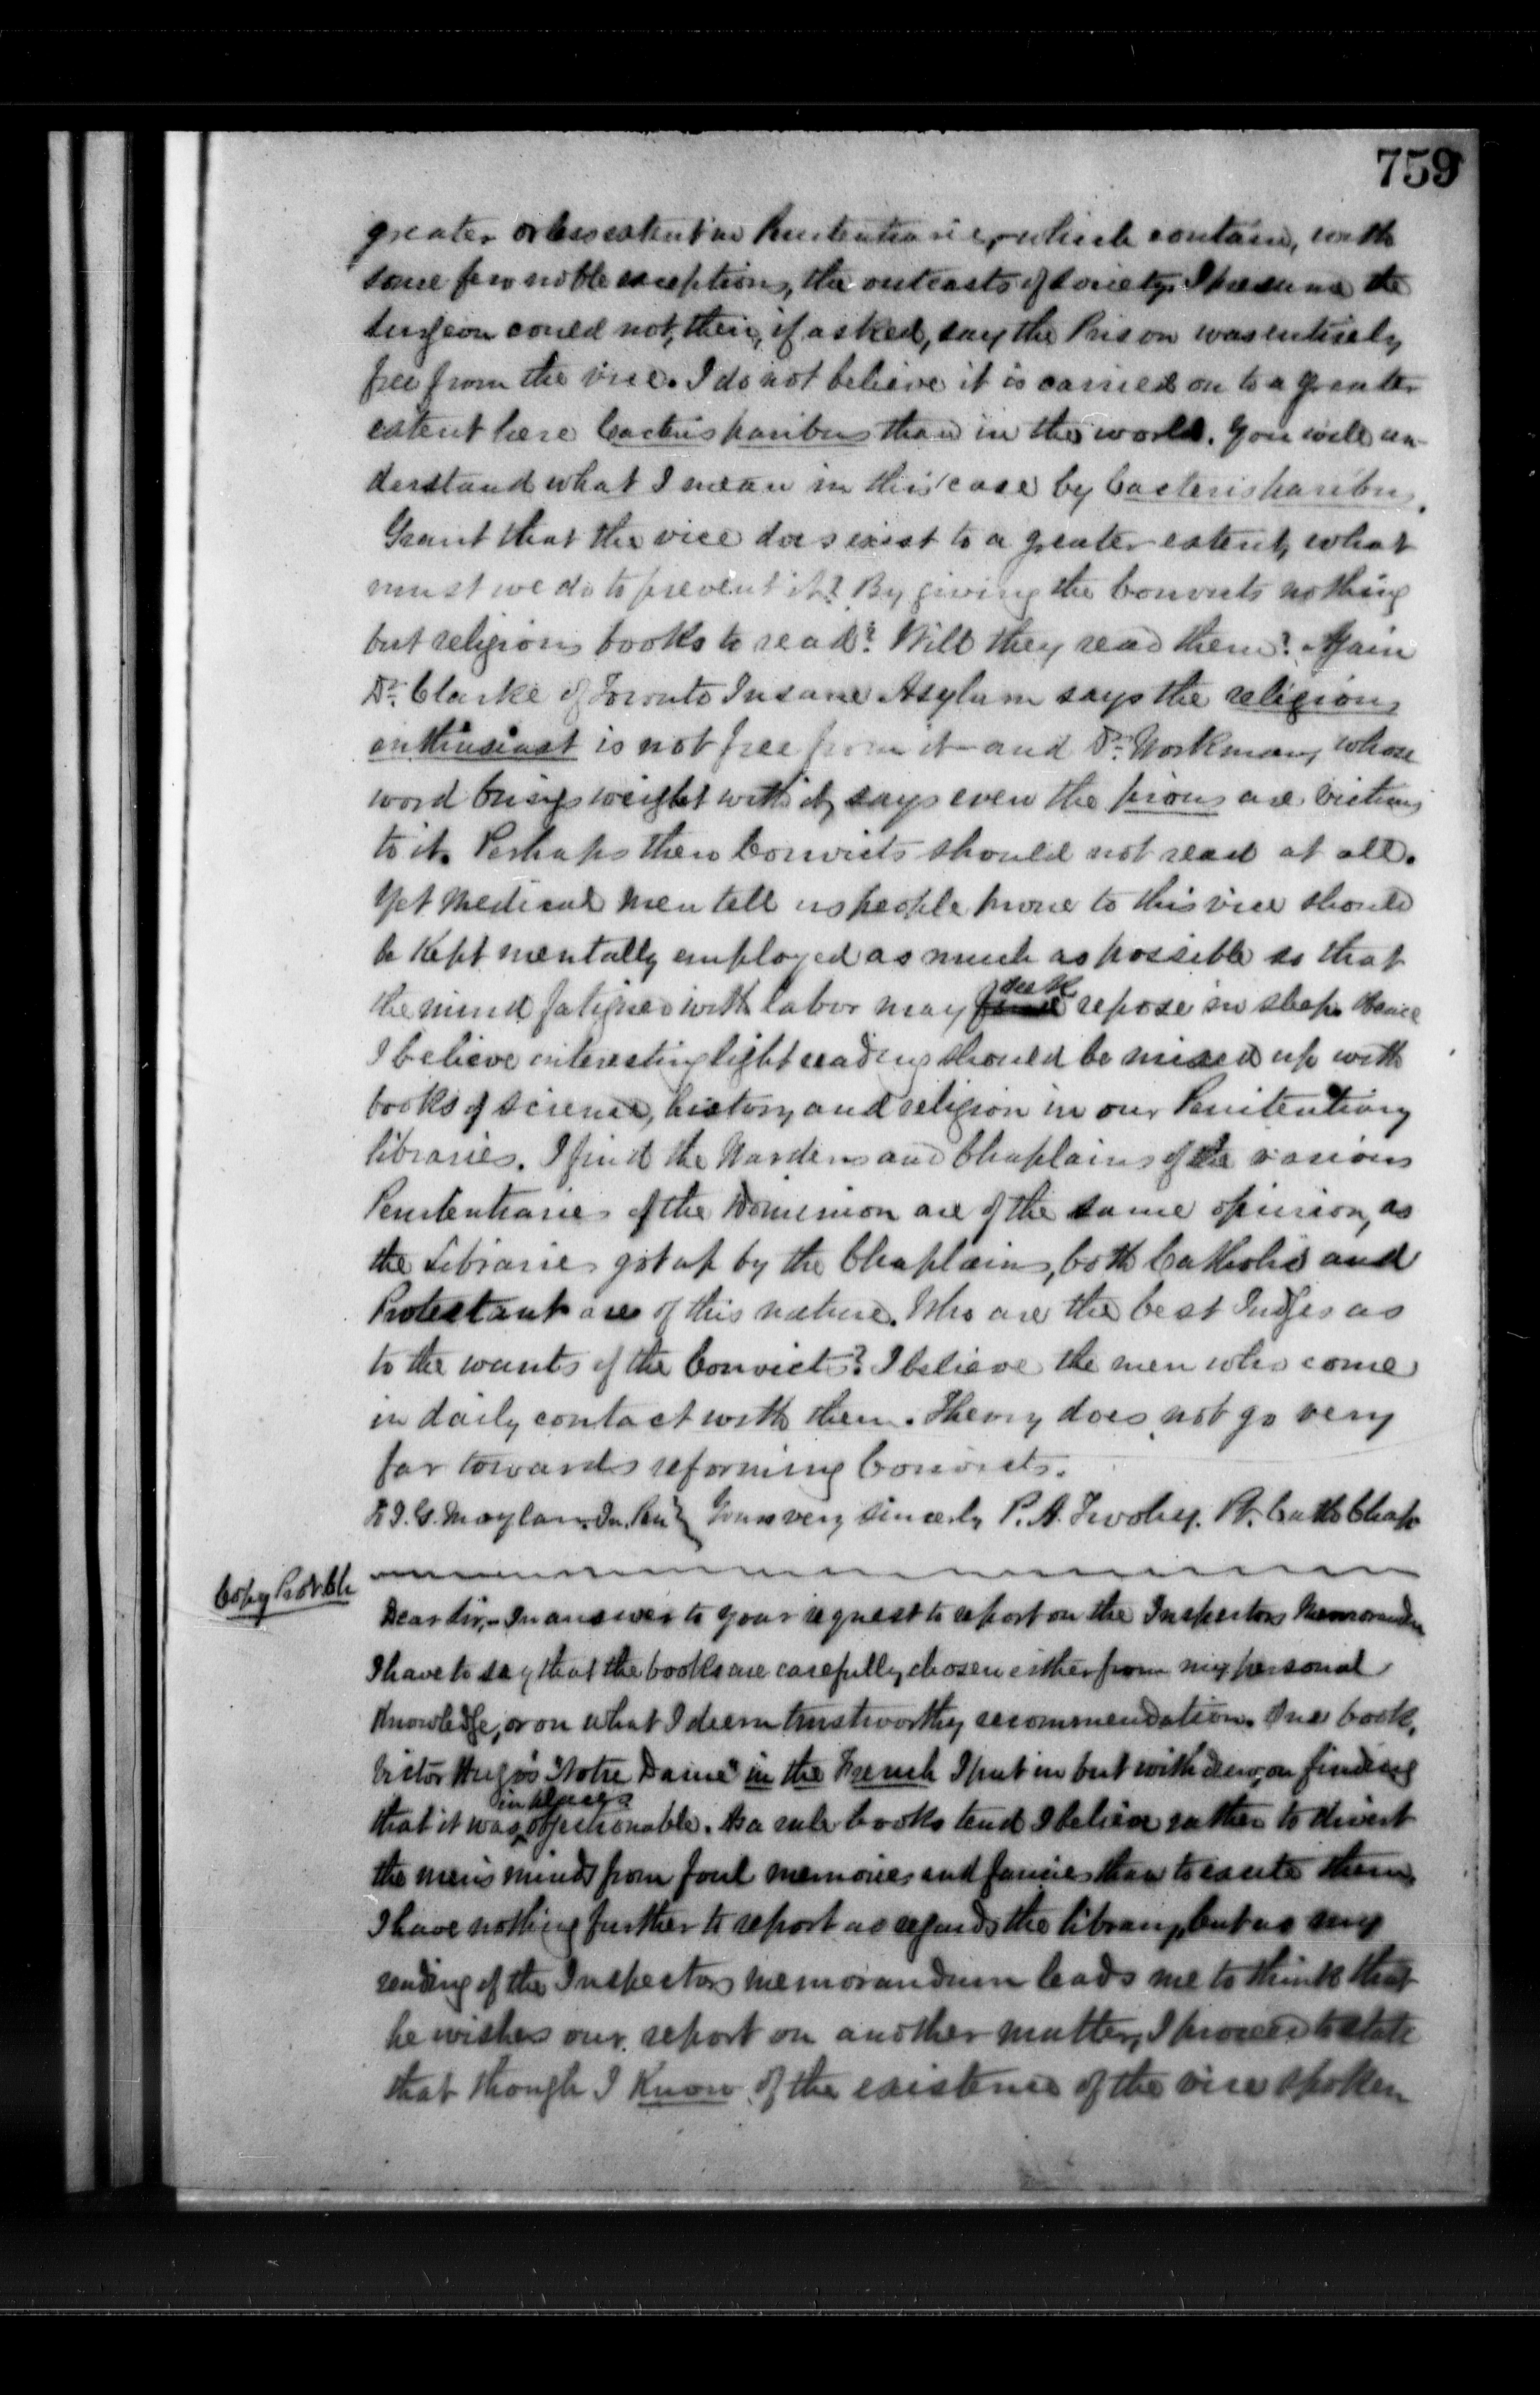 759
greater or less extent in Penitentiaries, which contain, with
some few noble exceptions, the outcasts of society. I presume the
Surgeon could not, then, if asked, say the Prison was entirely
free from the vice. I do not believe it is carried on to a greater
extent here Caeteris paribus than in the world. You will un-
derstand what I mean in this case by Caeteris paribus.
Grant that the vice does exist to a greater extent, what
must we do to prevent it? By giving the Convicts nothing
but religious books to read? Will they read them? Again
Dr. Clarke of Toronto Insane Asylum says the religious
enthusiast is not free from it - and Dr. Workman, whose
word brings weight with it, says even the pious are victims
to it. Perhaps then Convicts should not read at all.
Yet Medical men tell us people prone to this vice should
be Kept mentally employed as much as possible so that
the mind fatigued with labor may seek repose in sleep. Hence
I believe interesting light reading should be mixed up with
books of science, history and religion in our Penitentiary
libraries. I find the Wardens and Chaplains of the various
Penitentiaries of the Dominion are of the same opinion, as
the Libraries got up by the Chaplains, both Catholic and
Protestant are of this nature. Who are the best Judges as
to the wants of the Convicts? I believe the men who come
in daily contact with them. Theory does not go very
far towards reforming Convicts.
To J. G. Moylan. In. Pen. } Yours very sincerely P. A. Twohey. R. Cath Chap
Copy Prot. Ch
Dear Sir, - In answer to your request to report on the Inspectors Memorandum
I have to say that the books are carefully chosen either from my personal
Knowledge, or on what I deem trustworthy recommendation. One book,
Victor Hugo's "Notre Dame" in the French I put in but withdrew, on finding
that it was in places objectionable. As a rule books tend I believe rather to divert
the men's minds from foul memories and fancies than to excite them.
I have nothing further to report as regards the library, but as my
reading of the Inspectors memorandum leads me to think that
he wishes our report on another matter, I proceed to state
that though I Know of the existence of the vice spoken